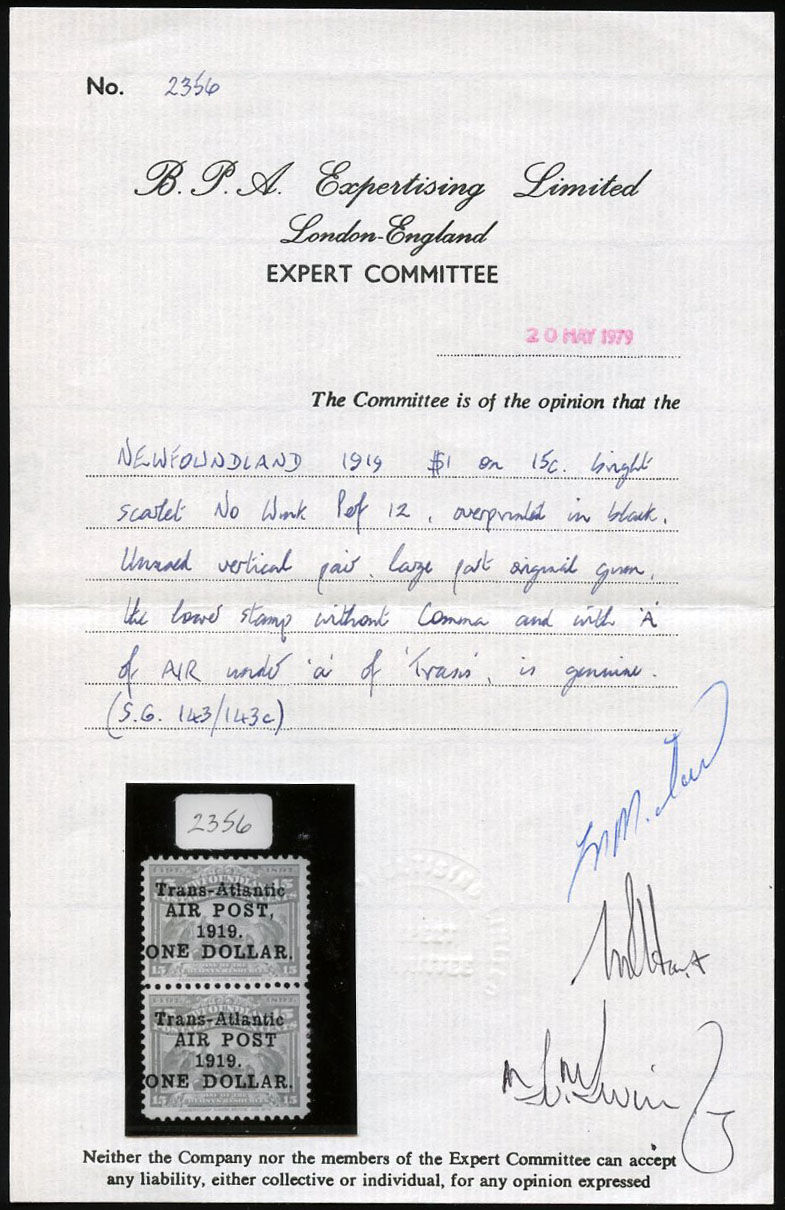 No. 2356
B. P. A. Expertising Limited
London-England
EXPERT COMMITTEE
20 MAY 1979
The Committee is of the opinion that the
NEWFOUNDLAND 1919 $1 on 15c. bright
scarlet No Wmk Perf 12, overprinted in black,
Unused vertical pair, large part original gum,
the lower stamp without Comma and with 'A'
of AIR under 'a' of 'Trans', is genuine.
(S.G. 143/143c)
2356
Trans-Atlantic
AIR POST,
1919.
ONE DOLLAR.
15 15
Trans-Atlantic
AIR POST
1919.
ONE DOLLAR.
15 15
Neither the Company nor the members of the Expert Committee can accept
any liability, either collective or individual, for any opinion expressed